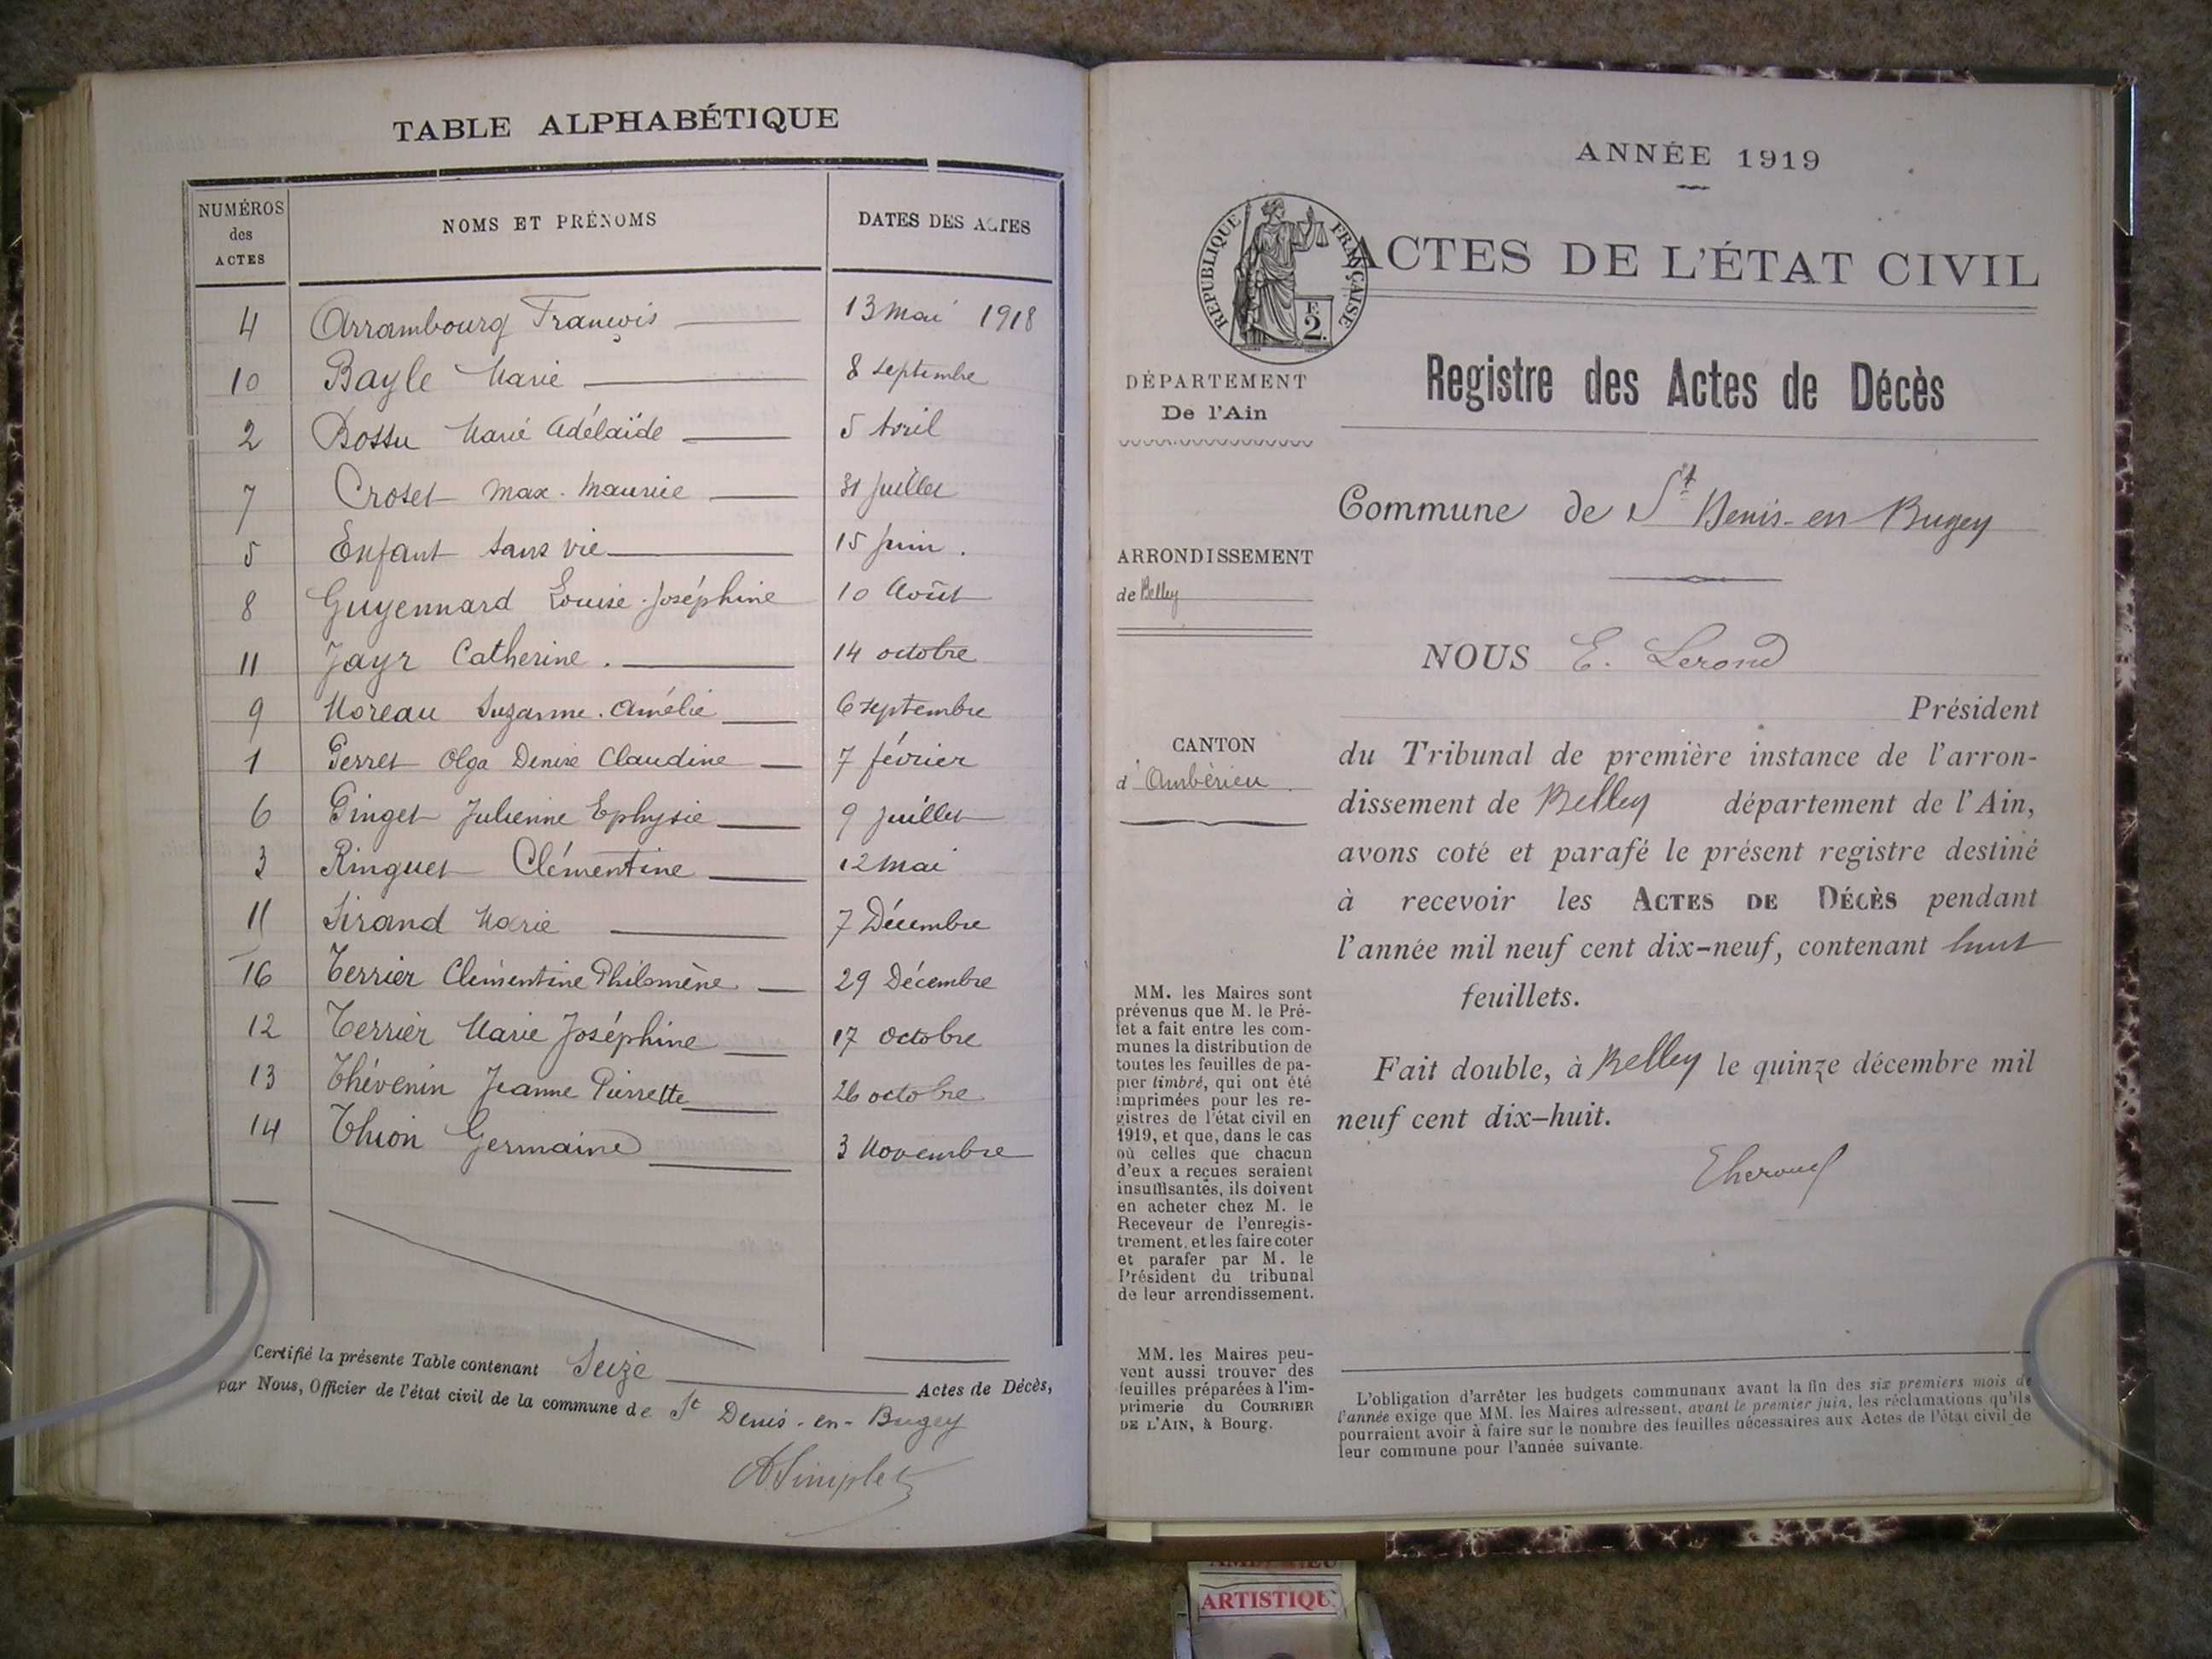 TABLE ALPHABÉTIQUE
NUMÉROS des ACTES NOMS ET PRÉNOMS DATES DES ACTES
4 Arrambourg François 13 mai 1918
10 Bayle Marie 8 septembre
2 Bossu Marie Adélaïde 5 Avril
7 Croset Max. Maurice 31 Juillet
5 Enfant sans vie 15 Juin.
8 Guyennard Louise-Joséphine 10 Août
11 Jayr Catherine. 14 octobre
9 Moreau Suzanne. Amélie 6 septembre
1 Perret Olga Denise Claudine 7 février
6 Pinget Julienne Ephysie 9 Juillet
3 Ringuet Clémentine 12 mai
11 Sirand Marie 7 Décembre
16 Terrier Clémentine Philomène 29 Décembre
12 Terrier Marie Joséphine 17 octobre
13 Thévenin Jeanne Pierrette 26 octobre
14 Thion Germaine 3 Novembre
Certifié la présente Table contenant Seize Actes de Décès,
par Nous, Officier de l'état civil de la commune de St Denis-en-Bugey
ASimplet
ANNÉE 1919
RÉPUBLIQUE FRANÇAISE
F.
2.
ACTES DE L'ÉTAT CIVIL
DÉPARTEMENT
De l'Ain
Registre des Actes de Décès
Commune de St Denis-en-Bugey
ARRONDISSEMENT
de Belley
NOUS E. Lerond
Président
CANTON
d'Ambérieu
du Tribunal de première instance de l'arron-
dissement de Belley département de l'Ain,
avons coté et parafé le présent registre destiné
à recevoir les ACTES DE DÉCÈS pendant
l'année mil neuf cent dix-neuf, contenant huit
feuillets.
Fait double, à Belley le quinze décembre mil
neuf cent dix-huit.
MM. les Maires sont
prévenus que M. le Pré-
fet a fait entre les com-
munes la distribution de
toutes les feuilles de pa-
pier timbré, qui ont été
imprimées pour les re-
gistres de l'état civil en
1919, et que, dans le cas
où celles que chacun
d'eux a reçues seraient
insuffisantes, ils doivent
en acheter chez M. le
Receveur de l'enregis-
trement, et les faire coter
et parafer par M. le
Président du tribunal
de leur arrondissement.
MM. les Maires peu-
vent aussi trouver des
feuilles préparées à l'im-
primerie du COURRIER
DE L'AIN, à Bourg.
L'obligation d'arrêter les budgets communaux avant la fin des six premiers mois de
l'année exige que MM. les Maires adressent, avant le premier juin, les réclamations qu'ils
pourraient avoir à faire sur le nombre des feuilles nécessaires aux Actes de l'état civil de
leur commune pour l'année suivante.
ARTISTIQU